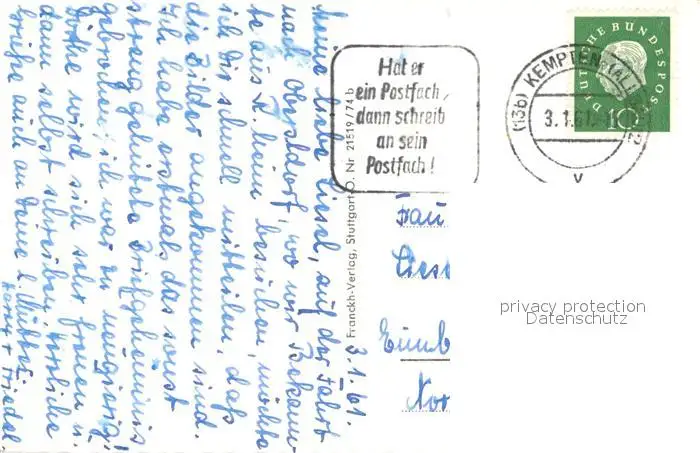 3.1.61.
Meine liebe Liesel, auf der Fahrt
nach Oberstdorf, wo wir Bekann-
te aus K. heim besuchen, möchte
ich dir schnell mitteilen, daß
die Bilder angekommen sind.
Ich habe erstmals das sonst
streng gehütete Briefgeheimnis
gebrochen, ich war zu neugierig!
wird sich sehr freuen u.
dann selbst schreiben, herzliche
Grüße auch an Deine l. Mutter
Harry + Friedel.
Franckh-Verlag, Stuttgart-O. Nr. 21519/74 b
Hat er
ein Postfach,
dann schreib
an sein
Postfach!
(13b) KEMPTEN (ALLGÄU) 2
3.1.61.
v
DEUTSCHE BUNDESPOST
10
Frau
Liese
Einb
Nor
privacy protection
Datenschutz